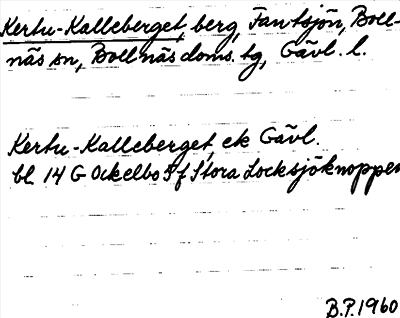 Kertu-Kalleberget, berg, Fantsjön, Boll-
näs sn, Bollnäs doms. tg, Gävl. l.
Kertu-Kalleberget, ek Gävl.
bl 14 G Ockelbo S f Stora Locksjöknoppen
B.P. 1960